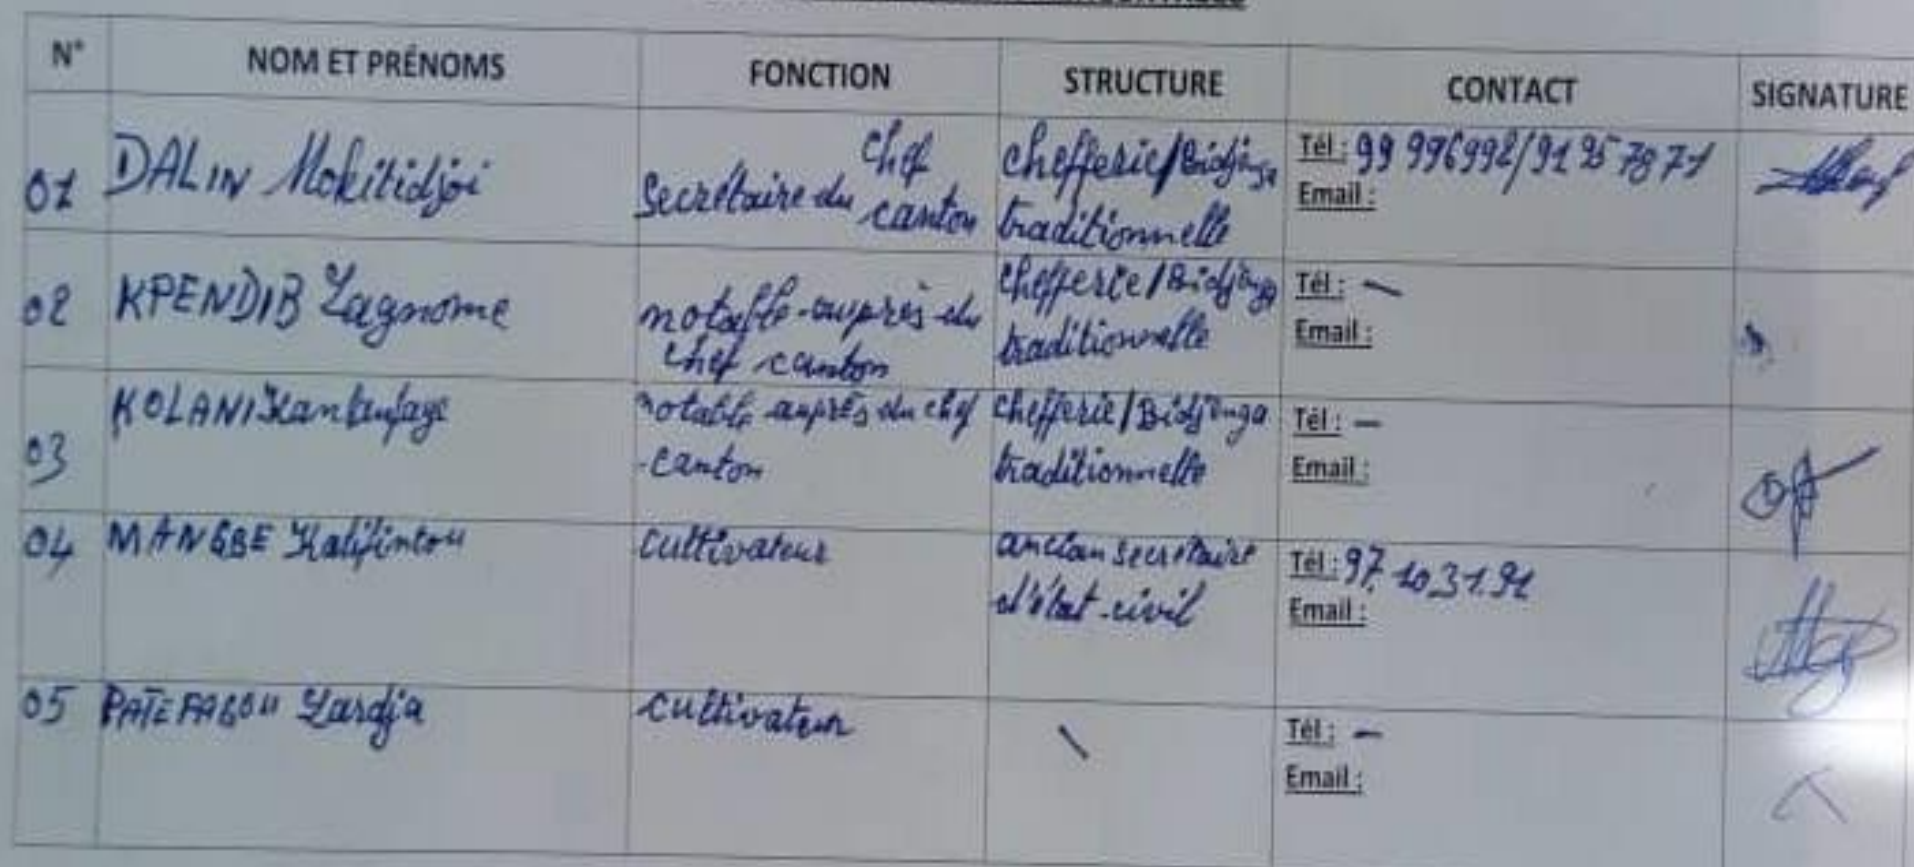 N° NOM ET PRÉNOMS FONCTION STRUCTURE CONTACT SIGNATURE
01 DALIN Mokitidjoi Secrétaire du chef canton chefferie/Bidjinga traditionnelle Tél : 99 996992/91 95 78 71
Email :
02 KPENDIB Lagnome notable auprès du chef canton chefferie/Bidjinga traditionnelle Tél : —
Email :
03 KOLANI notable auprès du chef canton chefferie/Bidjinga traditionnelle Tél : —
Email :
04 MANGBE Kalifintou cultivateur ancian secrétaire d'état-civil Tél : 97.10.31.91
Email :
05 Lardja cultivateur \ Tél : —
Email :